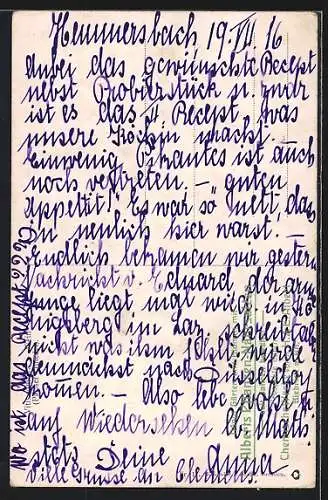 Hemmersbach 19.VII.16
anbei das gewünschte Recept
nebst Probierstück u. zwar
ist es das Recept was
unsere Köchin macht.
Einwenig Pikantes ist auch
noch vertreten, – guten
appetit! Es war so nett, dass
Du neulich hier warst! –
Endlich bekamen wir gestern
Nachricht v. Eduard, der arme
Junge liegt mal wied. in Kö-
nigsberg im Laz. schreibt aber
nicht was ihm fehlt, würde
demnächst nach Düsseldorf
kommen. – Also lebe wohl u.
auf Wiedersehen
stets Deine Anna
Viele Grüsse an Clemens.
Wo ist das Recept???